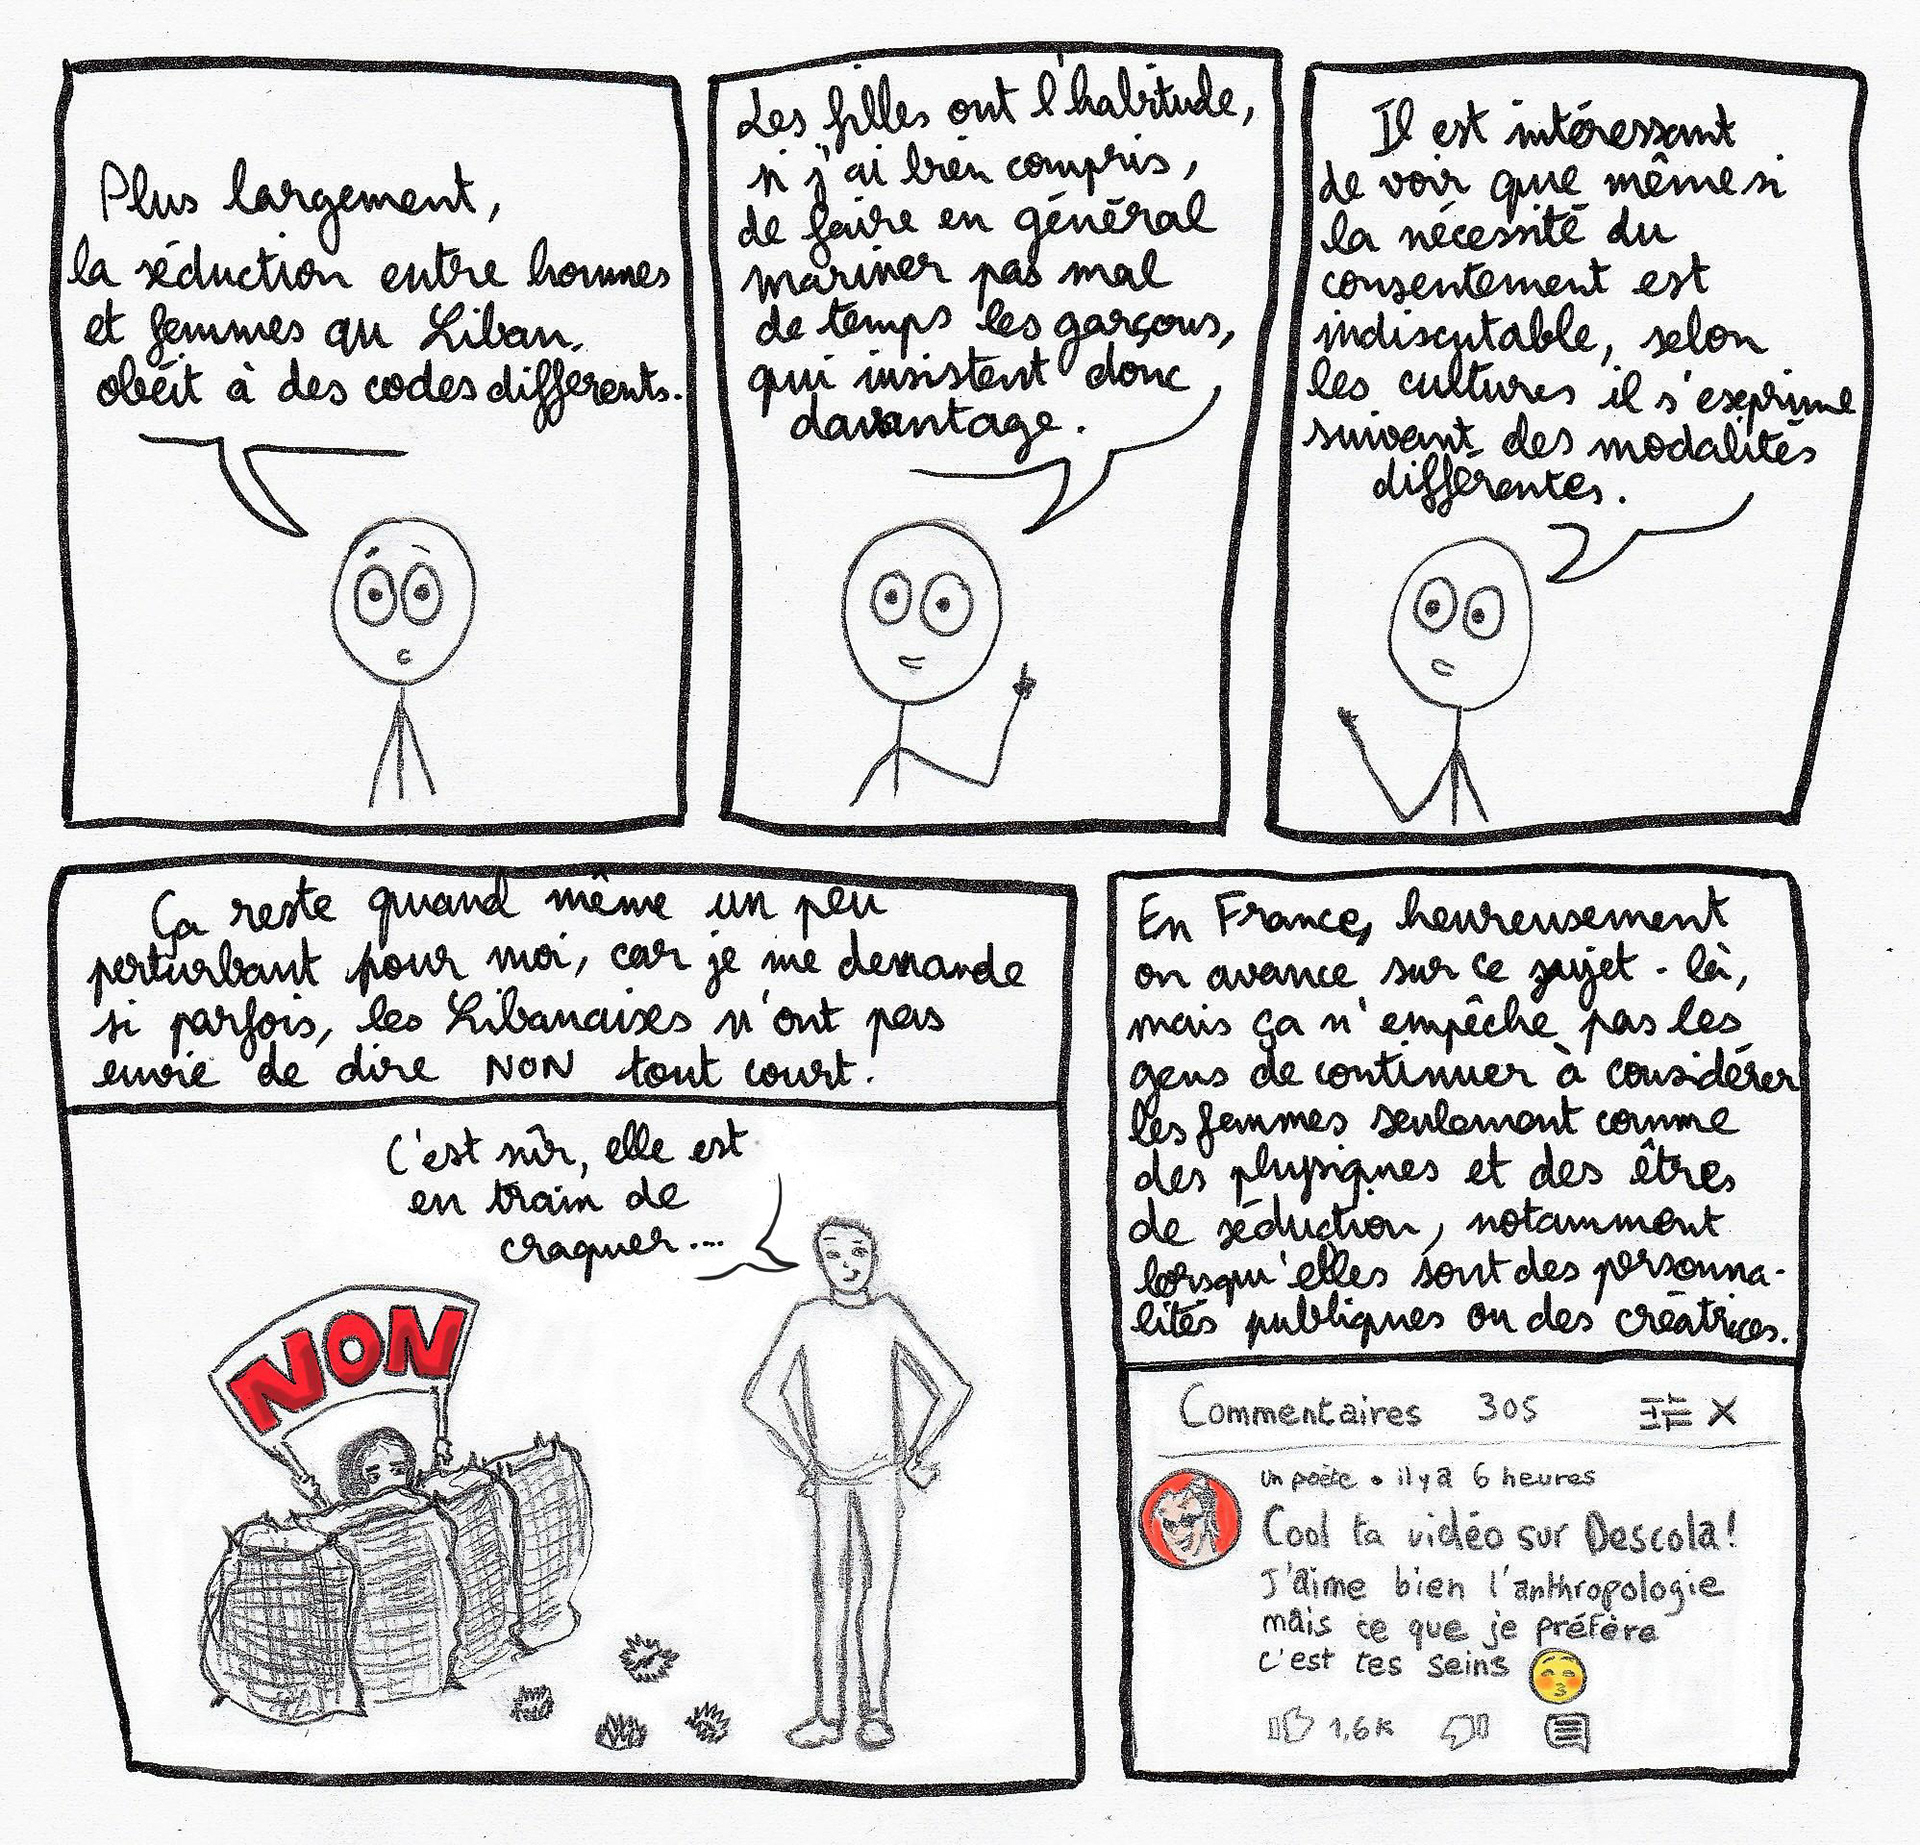 Plus largement,
la séduction entre hommes
et femmes au Liban
obéit à des codes différents.
Les filles ont l'habitude,
si j'ai bien compris,
de faire en général
mariner pas mal
de temps les garçons,
qui insistent donc
davantage.
Il est intéressant
de voir que même si
la nécessité du
consentement est
indiscutable, selon
les cultures il s'exprime
suivant des modalités
différentes.
Ça reste quand même un peu
perturbant pour moi, car je me demande
si parfois, les Libanaises n'ont pas
envie de dire NON tout court.
C'est sûr, elle est
en train de
craquer...
NON
En France, heureusement
on avance sur ce sujet-là,
mais ça n'empêche pas les
gens de continuer à considérer
les femmes seulement comme
des physiques et des êtres
de séduction, notamment
lorsqu'elles sont des personna-
lités publiques ou des créatrices.
Commentaires 305
un poète • il y a 6 heures
Cool ta vidéo sur Descola!
J'aime bien l'anthropologie
mais ce que je préfère
c'est tes seins
1,6k